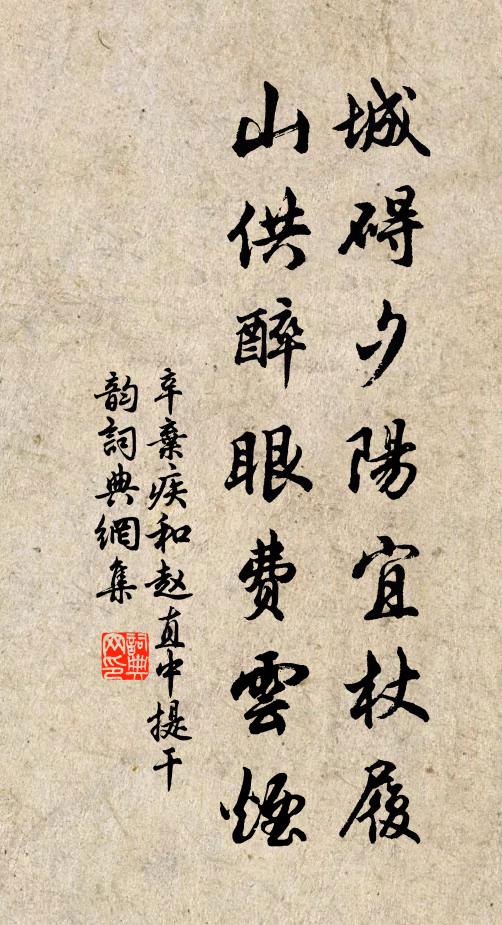 城碍夕陽宜杖履
山供醉眼費雲煙
辛棄疾和赵直中提干
韵詞典網集
詞典
网印